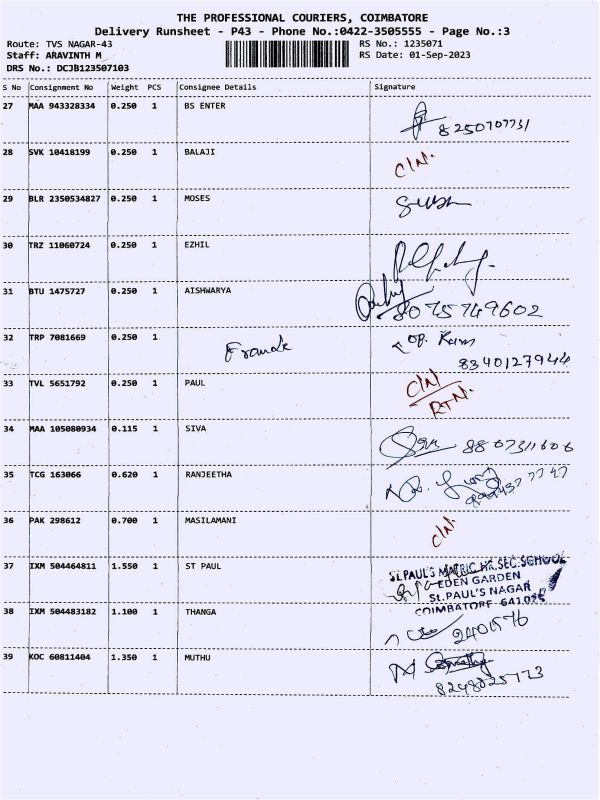 THE PROFESSIONAL COURIERS, COIMBATORE
Delivery Runsheet - P43 - Phone No.:0422-3505555 - Page No.:3
Route: TVS NAGAR-43 RS No.: 1235071
Staff: ARAVINTH M RS Date: 01-Sep-2023
DRS No.: DCJB123507103
S No Consignment No Weight PCS Consignee Details Signature
27 MAA 943328334 0.250 1 BS ENTER
8250707731
28 SVK 10418199 0.250 1 BALAJI
C/N.
29 BLR 2350534827 0.250 1 MOSES
30 TRZ 11060724 0.250 1 EZHIL
31 BTU 1475727 0.250 1 AISHWARYA
8075749602
32 TRP 7081669 0.250 1
8340127944
33 TVL 5651792 0.250 1 PAUL C/N
RTN.
34 MAA 105080934 0.115 1 SIVA
8807311606
35 TCG 163066 0.620 1 RANJEETHA
36 PAK 298612 0.700 1 MASILAMANI
C/N.
37 IXM 504464811 1.550 1 ST PAUL
St.PAUL'S MATRIC HR.SEC.SCHOOL
EDEN GARDEN
St.PAUL'S NAGAR
COIMBATORE
38 IXM 504483182 1.100 1 THANGA
2401576
39 KOC 60811404 1.350 1 MUTHU
8248025773